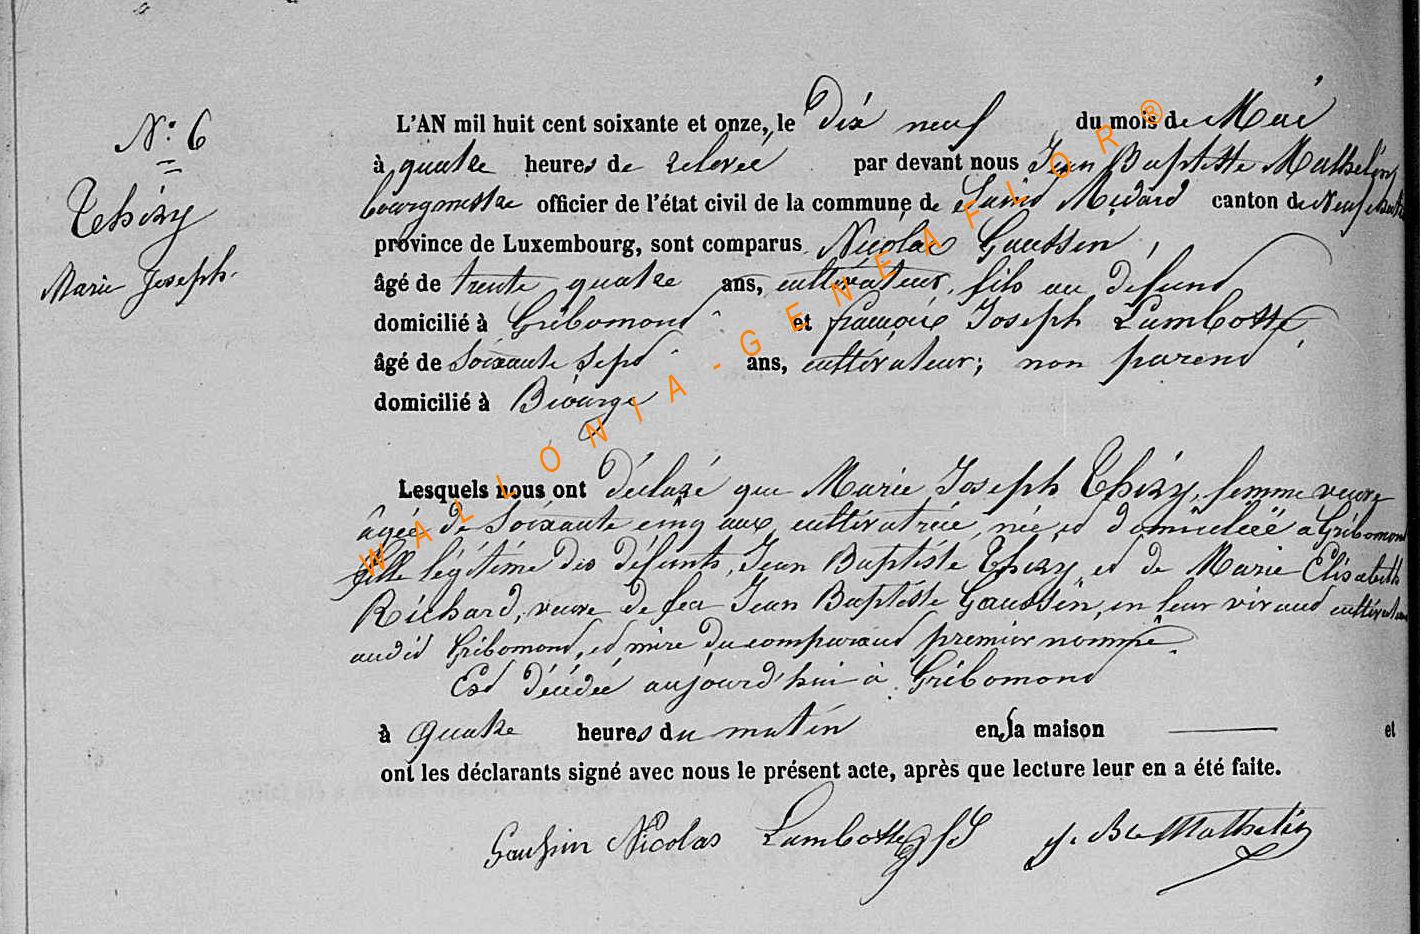 N° 6
Thiry
Marie Joseph.
L'AN mil huit cent soixante et onze, le Dix neuf du mois de Mai
à quatre heures de relevée par devant nous Jean Baptiste Mathelin
bourgmestre officier de l'état civil de la commune de Saint Médard canton de Neufchateau
province de Luxembourg, sont comparus Nicolas Gaussin,
âgé de trente quatre ans, cultivateur, fils au défunt
domicilié à Gribomont et françois Joseph Lambotte,
âgé de Soixante Sept ans, cultivateur; non parent
domicilié à Biourge
Lesquels nous ont déclaré que Marie Joseph Thiry, femme veuve
âgée de Soixante cinq ans, cultivatrice, née et domiciliée à Gribomont
fille légitime des défunts, Jean Baptiste Thiry et de Marie Elisabeth
Richard, veuve de feu Jean Baptiste Gaussin, en leur vivant cultivateurs
audit Gribomont, et mère du comparant premier nommé.
Est décédée aujourd'hui à Gribomont
à quatre heures du matin en sa maison et
ont les déclarants signé avec nous le présent acte, après que lecture leur en a été faite.
Gaussin Nicolas Lambotte fJ J. Bte Mathelin
WALLONIA-GENEAFLOR®